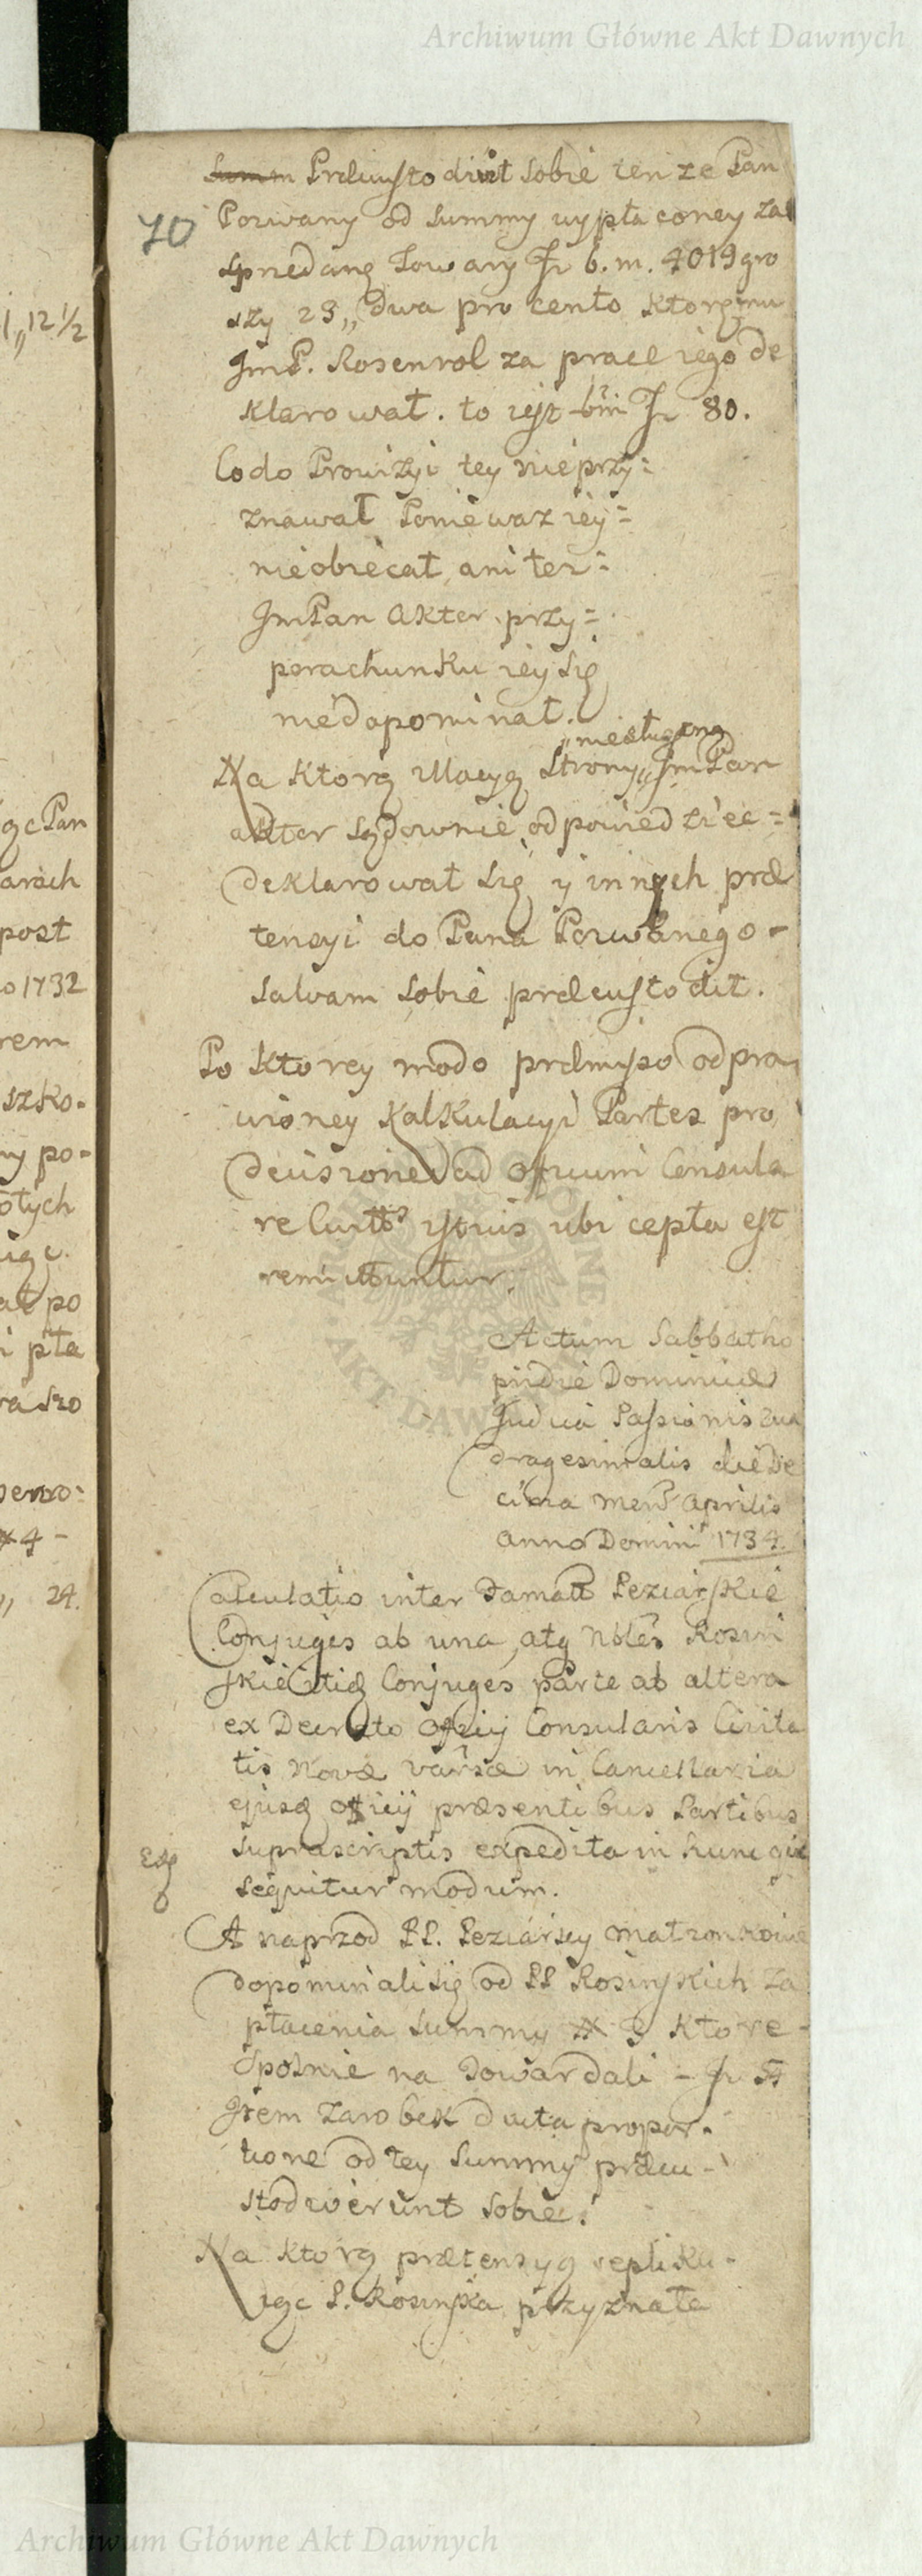 Archiwum Główne Akt Dawnych
70
Præcustodivit sobie tenze Pan
Pozwany od Summy wypłaconey za
sprzedane Towary fl b. m. 4019 gro
szy 23,, dwa pro cento ktore mu
JmP. Rosenrol za prace iego de
klarował. to iest bm fl 80.
Co do Prowizyi tey nieprzy:
znawał Poniewaz iey =
nieobiecał, ani tez :
JmPan Akter przy =
porachunku iey się
niedopominał.
Na ktorą Illacyą Strony JmPan
akter sądownie odpowiedziec =
deklarował się y innych præ
tensyi do Pana Pozwanego -
Salvam sobie præcustodit.
Po ktorey modo præmisso odpra
wioney Kalkulacyi Partes pro
decisione ad officium Consula
re istius ubi cepta est
remittuntur.
Actum Sabbatho
pridie Dominicæ
Judica Passionis Qua
dragesimalis die De
cima mens Aprilis
Anno Domini 1734.
Calculatio inter Famatt Leziarskie
Conjuges ab una, atq Nbles Rosin
skie itidē Conjuges parte ab altera
ex Decreto officij Consularis Civita
tis Novæ varsæ in Cancellaria
ejusq officij præsentibus Partibus
suprascriptis expedita in hunc qui
sequitur modum.
A naprzod PP. Leziarscy małzonkowie
dopominali się od PP Rosinskich za
płacenia Summy # 3 ktore -
Spolnie na Towar dali - fl 54
Item Zarobek ducta propor.
tione od tey Summy præcu -
stodiverunt sobie.
Na ktorą prætensyą repliku -
iąc P. Rosinska przyznała
1,,12 1/2
ąc Pan
arach
post
o 1732
rem
szko.
ny po-
ołych
iąc.
at po
i pła
# 4 -
,, 24.
Archiwum Główne Akt Dawnych